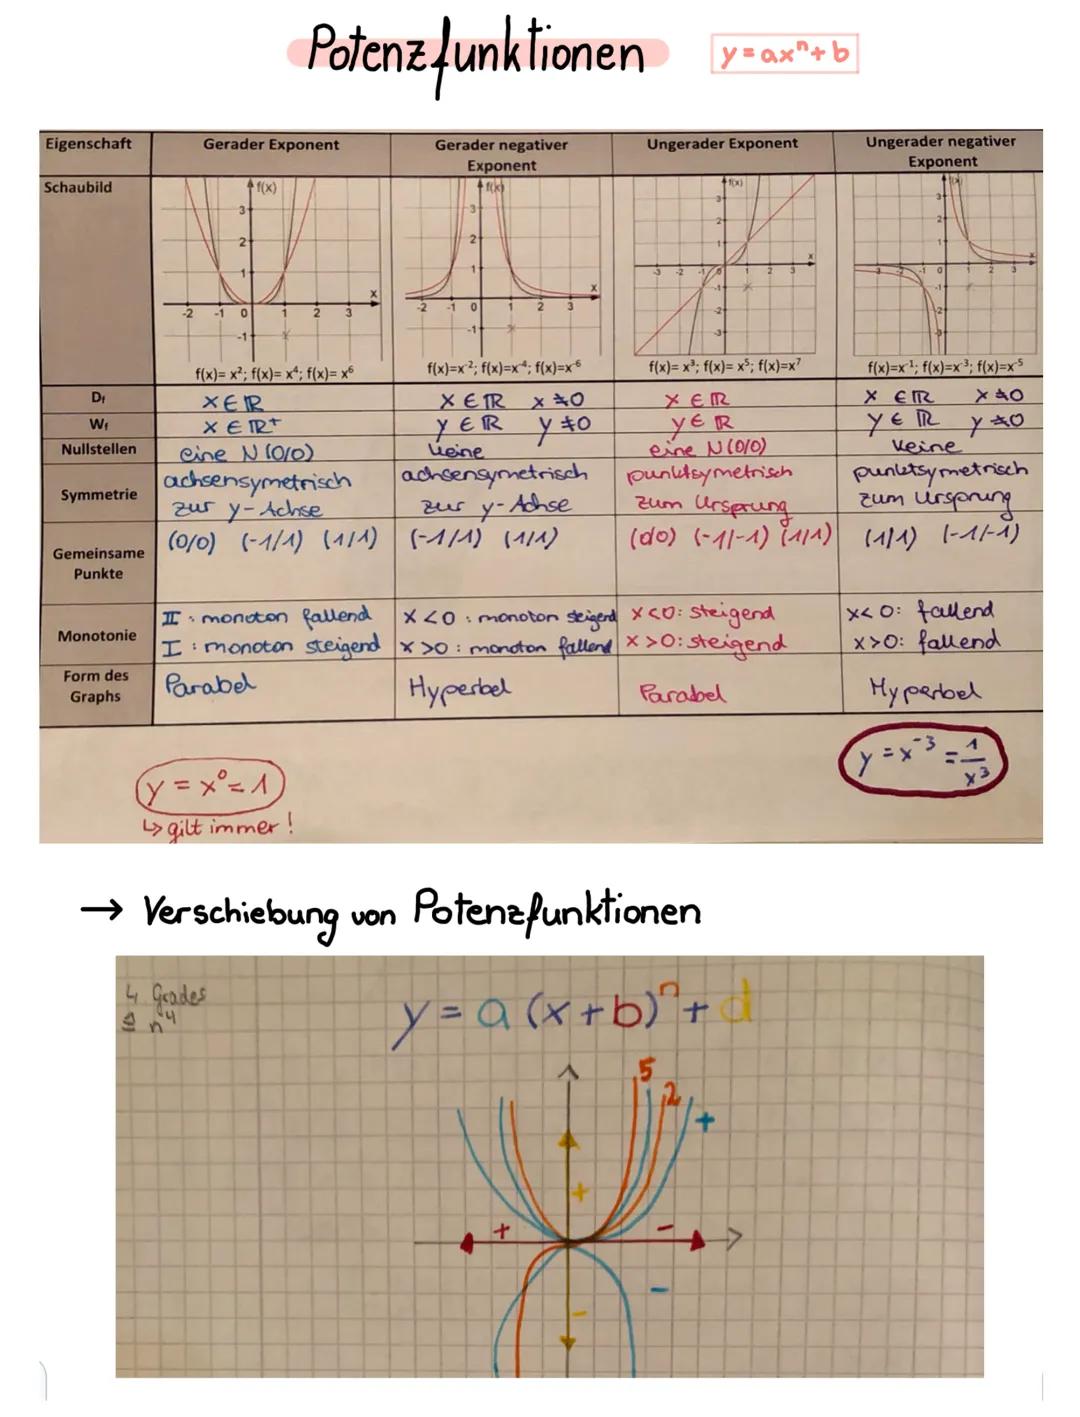 Potenzfunktionen
y=axⁿ+b
Eigenschaft Gerader Exponent Gerader negativer Exponent Ungerader Exponent Ungerader negativer Exponent
Schaubild
f(x)= x²; f(x)= x⁴; f(x)= x⁶ f(x)=x⁻²; f(x)=x⁻⁴; f(x)=x⁻⁶ f(x)= x³; f(x)= x⁵; f(x)=x⁷ f(x)=x⁻¹; f(x)=x⁻³; f(x)=x⁻⁵
Df x∈ℝ x∈ℝ x≠0 x∈ℝ x∈ℝ x≠0
Wf x∈ℝ⁺ y∈ℝ y≠0 y∈ℝ y∈ℝ y≠0
Nullstellen eine N(0/0) keine eine N(0/0) keine
Symmetrie achsensymetrisch zur y-Achse achsensymetrisch zur y-Achse punktsymetrisch zum Ursprung punktsymetrisch zum Ursprung
Gemeinsame Punkte (0/0) (-1/1) (1/1) (-1/1) (1/1) (0/0) (-1/-1) (1/1) (1/1) (-1/-1)
Monotonie II: monoton fallend I: monoton steigend x<0: monoton steigend x>0: monoton fallend x<0: steigend x>0: steigend x<0: fallend x>0: fallend
Form des Graphs Parabel Hyperbel Parabel Hyperbel
y=x⁻³=1/x³
y=x⁰=1
↳ gilt immer!
→ Verschiebung von Potenzfunktionen
4 Grades
≙ n⁴
y=a(x+b)ⁿ+d
5
2
+
+
+ -
-
-